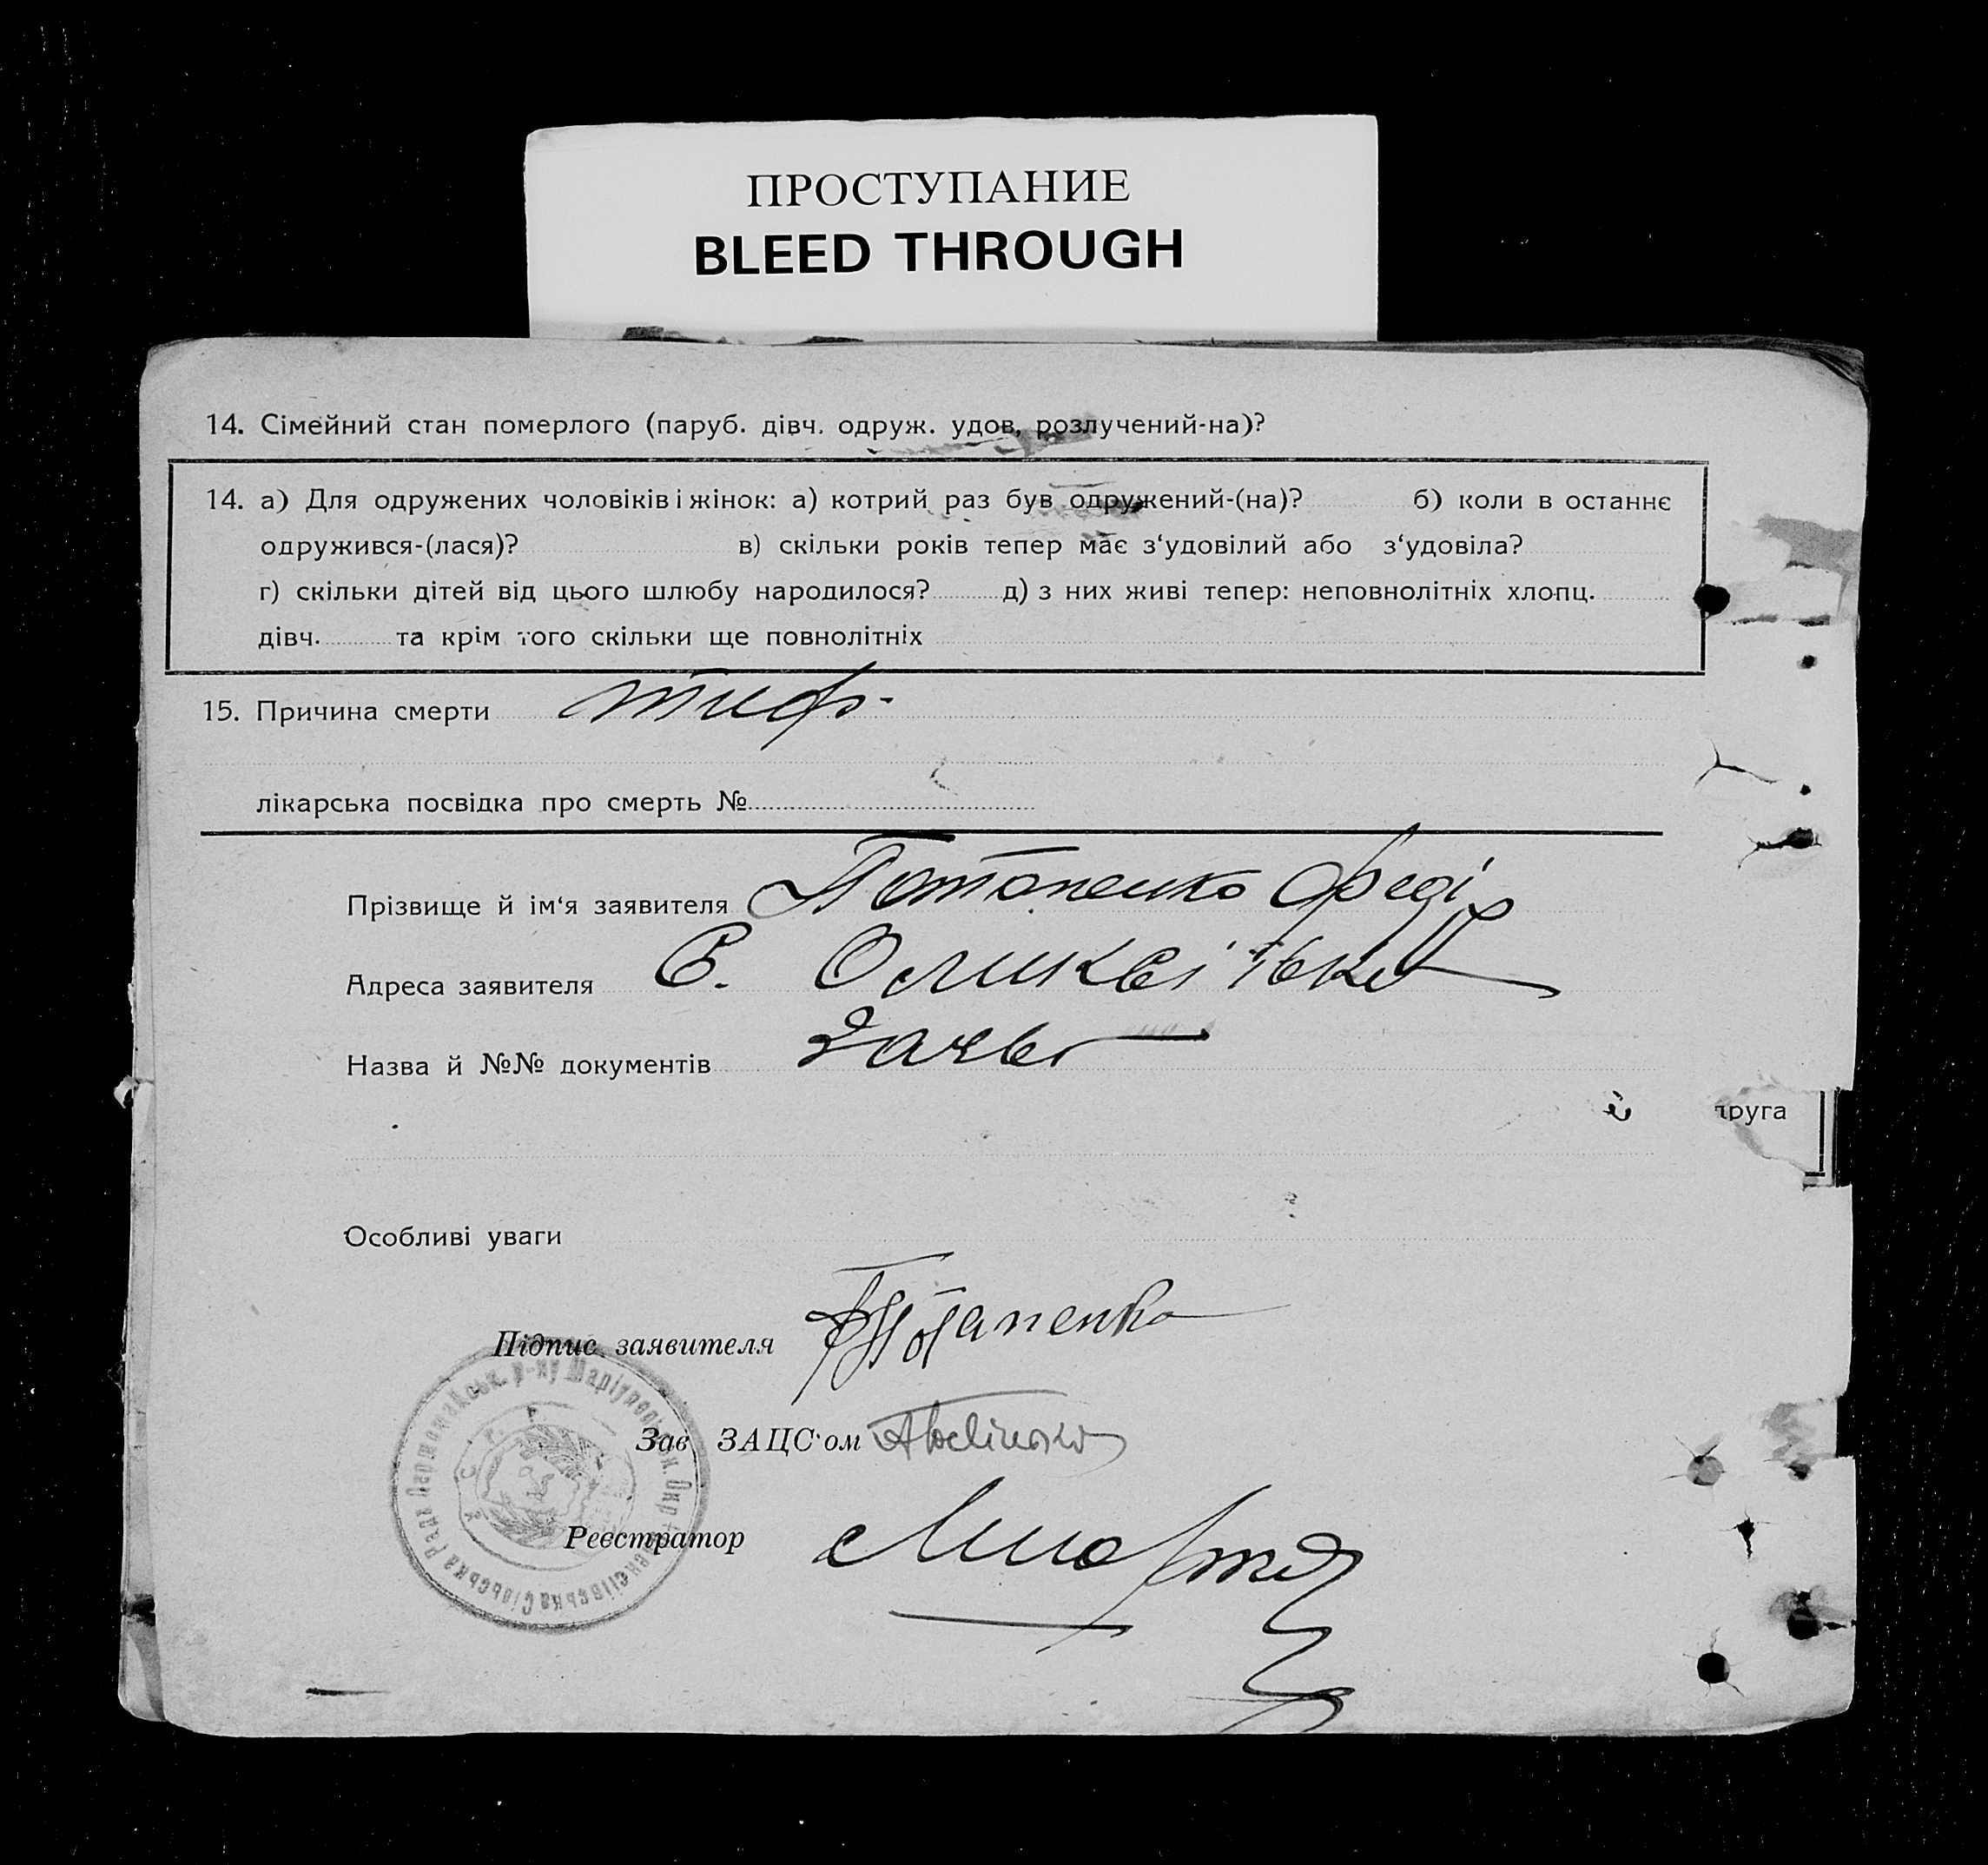 ПРОСТУПАНИЕ
BLEED THROUGH
14. Сімейний стан померлого (паруб. дівч. одруж. удов, розлучений-на)?
14. а) Для одружених чоловіків і жінок: а) котрий раз був одружений-(на)? б) коли в останнє
одружився-(лася)? в) скільки років тепер має з‘удовілий або з‘удовіла?
г) скільки дітей від цього шлюбу народилося? д) з них живі тепер: неповнолітніх хлопц.
дівч. та крім того скільки ще повнолітніх
15. Причина смерти тиф
лікарська посвідка про смерть №
Прізвище й ім‘я заявителя Потопенко Федір
Адреса заявителя С.
Назва й №№ документів
пруга
Особливі уваги
Підпис заявителя Потапенко
Зав. ЗАЦС‘ом
Реєстратор